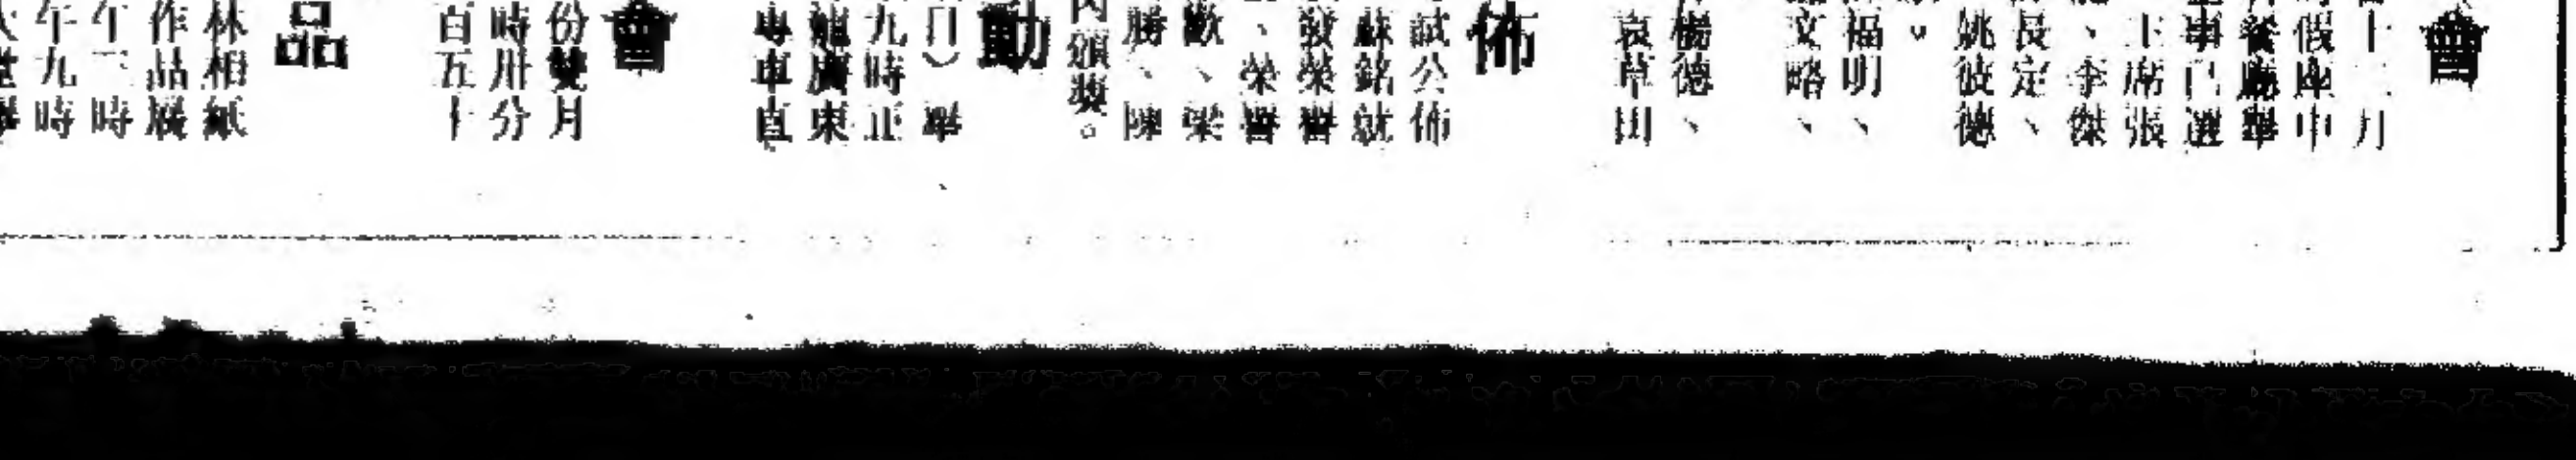 會
十二月
假座中
餐廳舉
事已選
主席張
、李傑
長定、
姚彼德
福明、
文略、
楊德、
哀草田
佈
試公佈
蘇銘就
發榮譽
、榮譽
歡、梁
勝、陳
內頒獎。
動
日）舉
九時正
龍廣東
專車直
會
份雙月
時卅分
百五十
品
林相紙
作品展
午二時
午九時